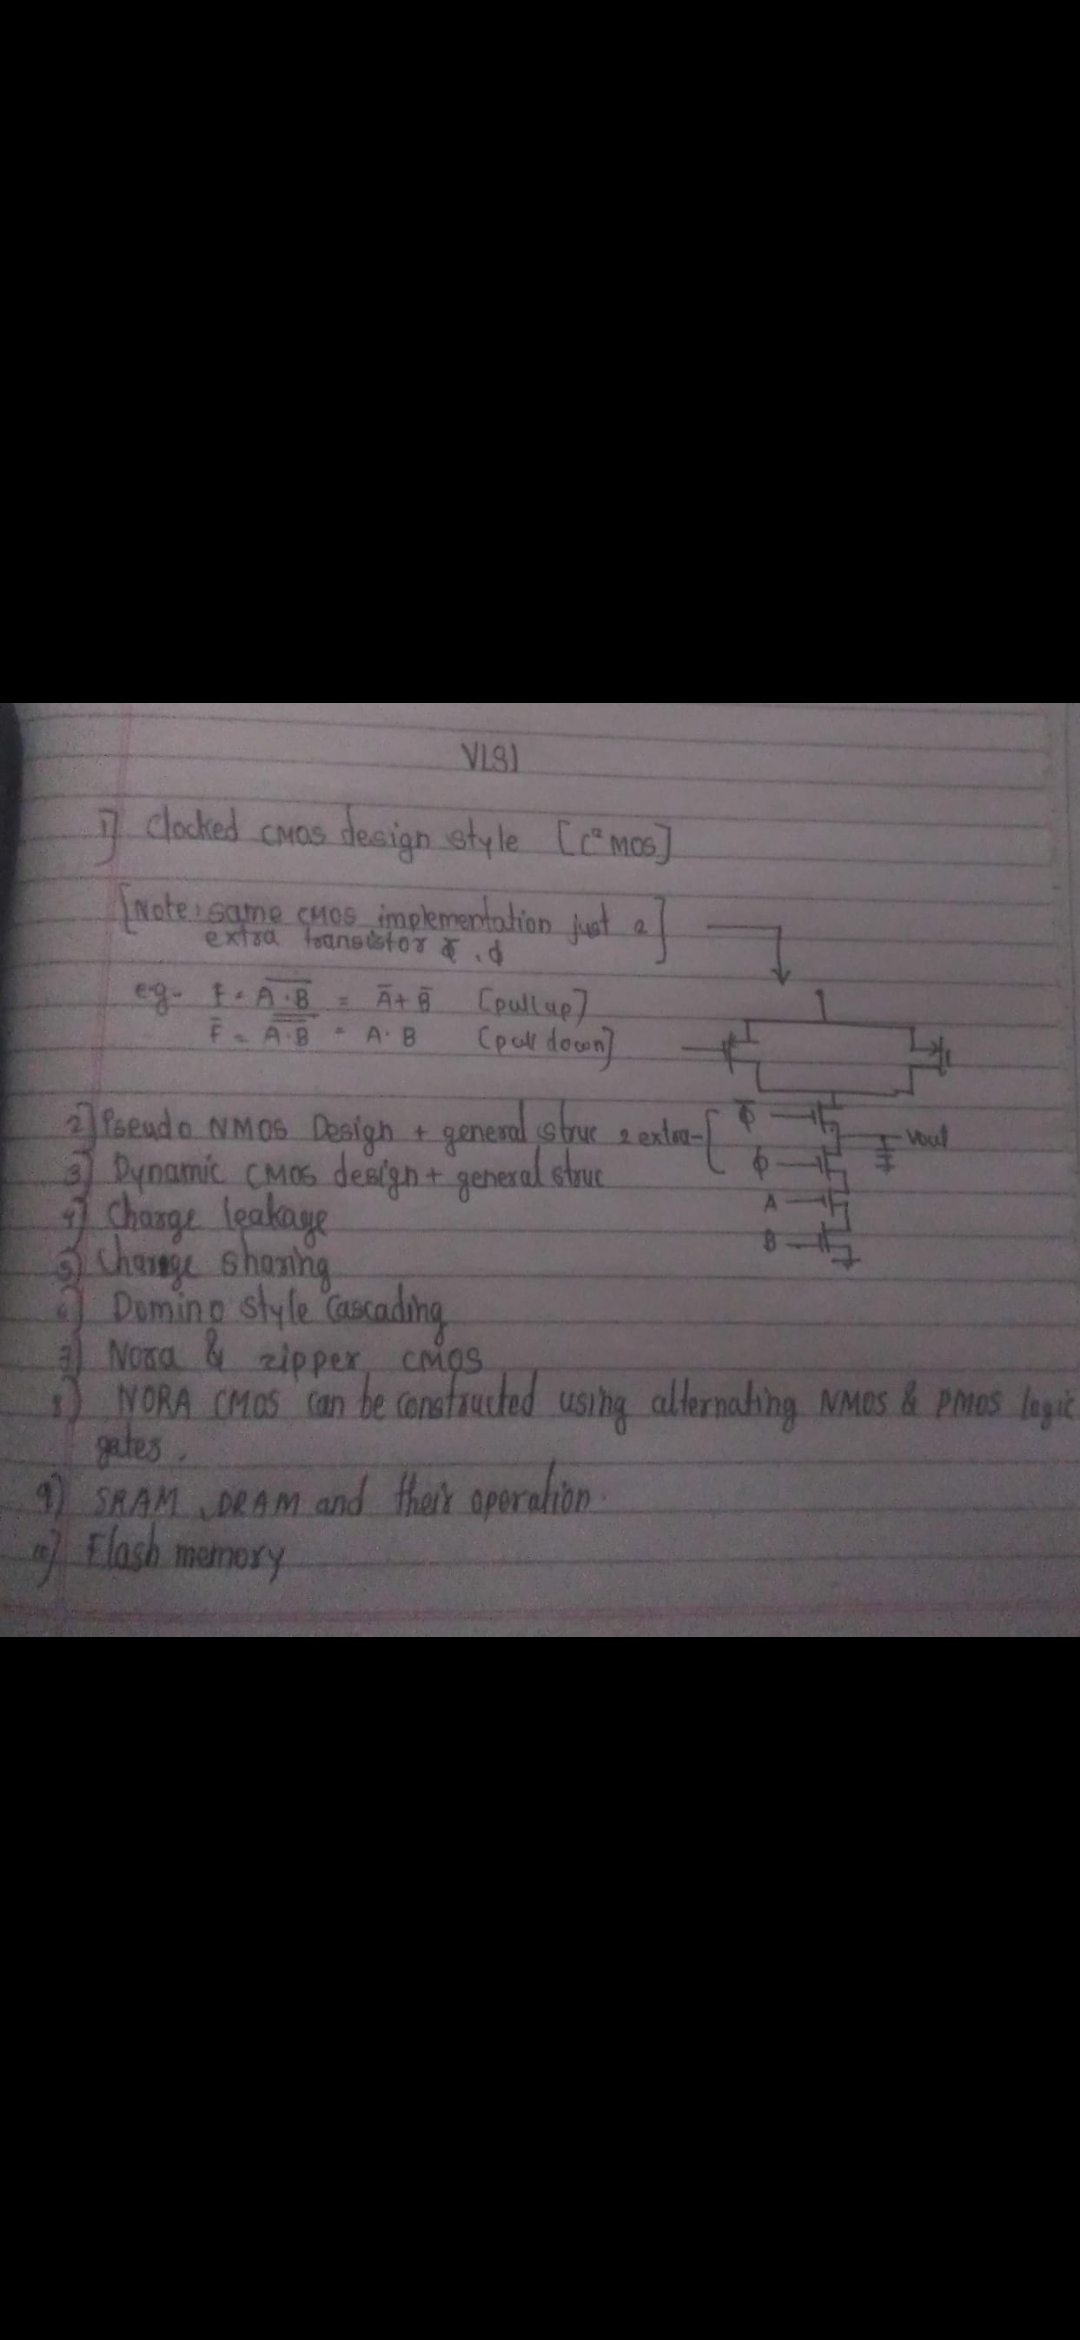 VLSI
1] Clocked CMOS design style [C²MOS]
[Note: same CMOS implementation just 2]
extra transistor Φ̅, Φ
e.g. F = \overline{A·B} = A̅ + B̅ [pull up]
F̅ = \overline{\overline{A·B}} = A·B [pull down]
2] Pseudo NMOS Design + general struc
2 extra
Φ̅
Vout
3] Dynamic CMOS design + general struc
Φ
4] Charge leakage
A
5] Charge sharing
B
6] Domino style Cascading
7] Nora & zipper CMOS
8] NORA CMOS can be constructed using alternating NMOS & PMOS logic
gates.
9] SRAM, DRAM and their operation.
10] Flash memory